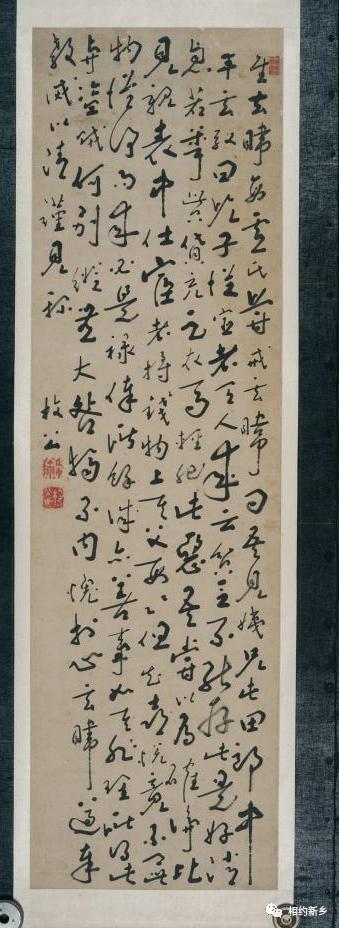 崔玄暐母盧氏嘗戒玄暐曰吾見姨兄屯田郎中
辛玄馭曰兒子從宦者有人來云貧乏不能存此是好消
息若聞貲貨充足衣馬輕肥此惡吾嘗以為確論比
見親表中仕宦者將錢物上其父母父母但知喜悅竟不問此
物從何而來必是祿俸所餘誠亦善事如其非理所得此
與盜賊何別縱無大咎獨不内愧於心玄暐遵奉
教誡以清謹見稱
相约新乡